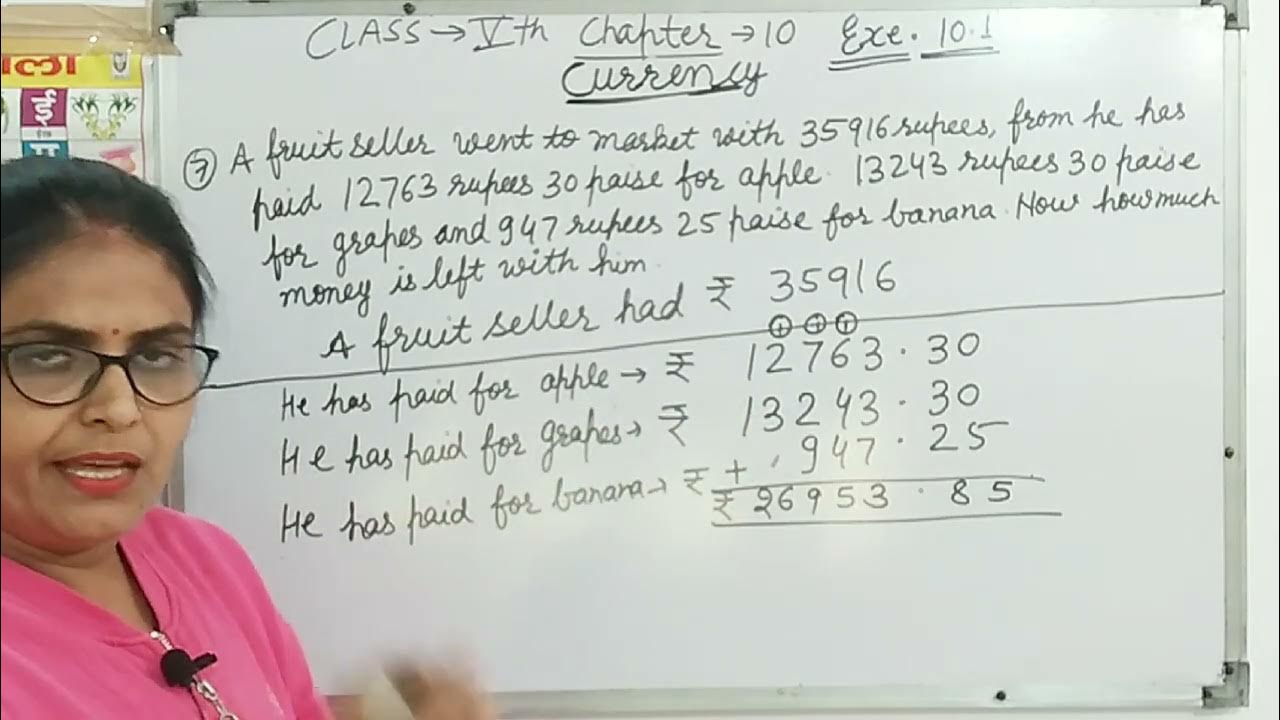 CLASS → Vth Chapter → 10 Exe. 10.1
Currency
ला
ई
⑦ A fruit seller went to market with 35916 rupees, from he has
paid 12763 rupees 30 paise for apple. 13243 rupees 30 paise
for grapes and 947 rupees 25 paise for banana. Now how much
money is left with him.
A fruit seller had ₹ 35916
⊕ ⊕ ⊕
He has paid for apple → ₹ 12763.30
He has paid for grapes → ₹ 13243.30
He has paid for banana → ₹ + 947.25
₹ 26953.85